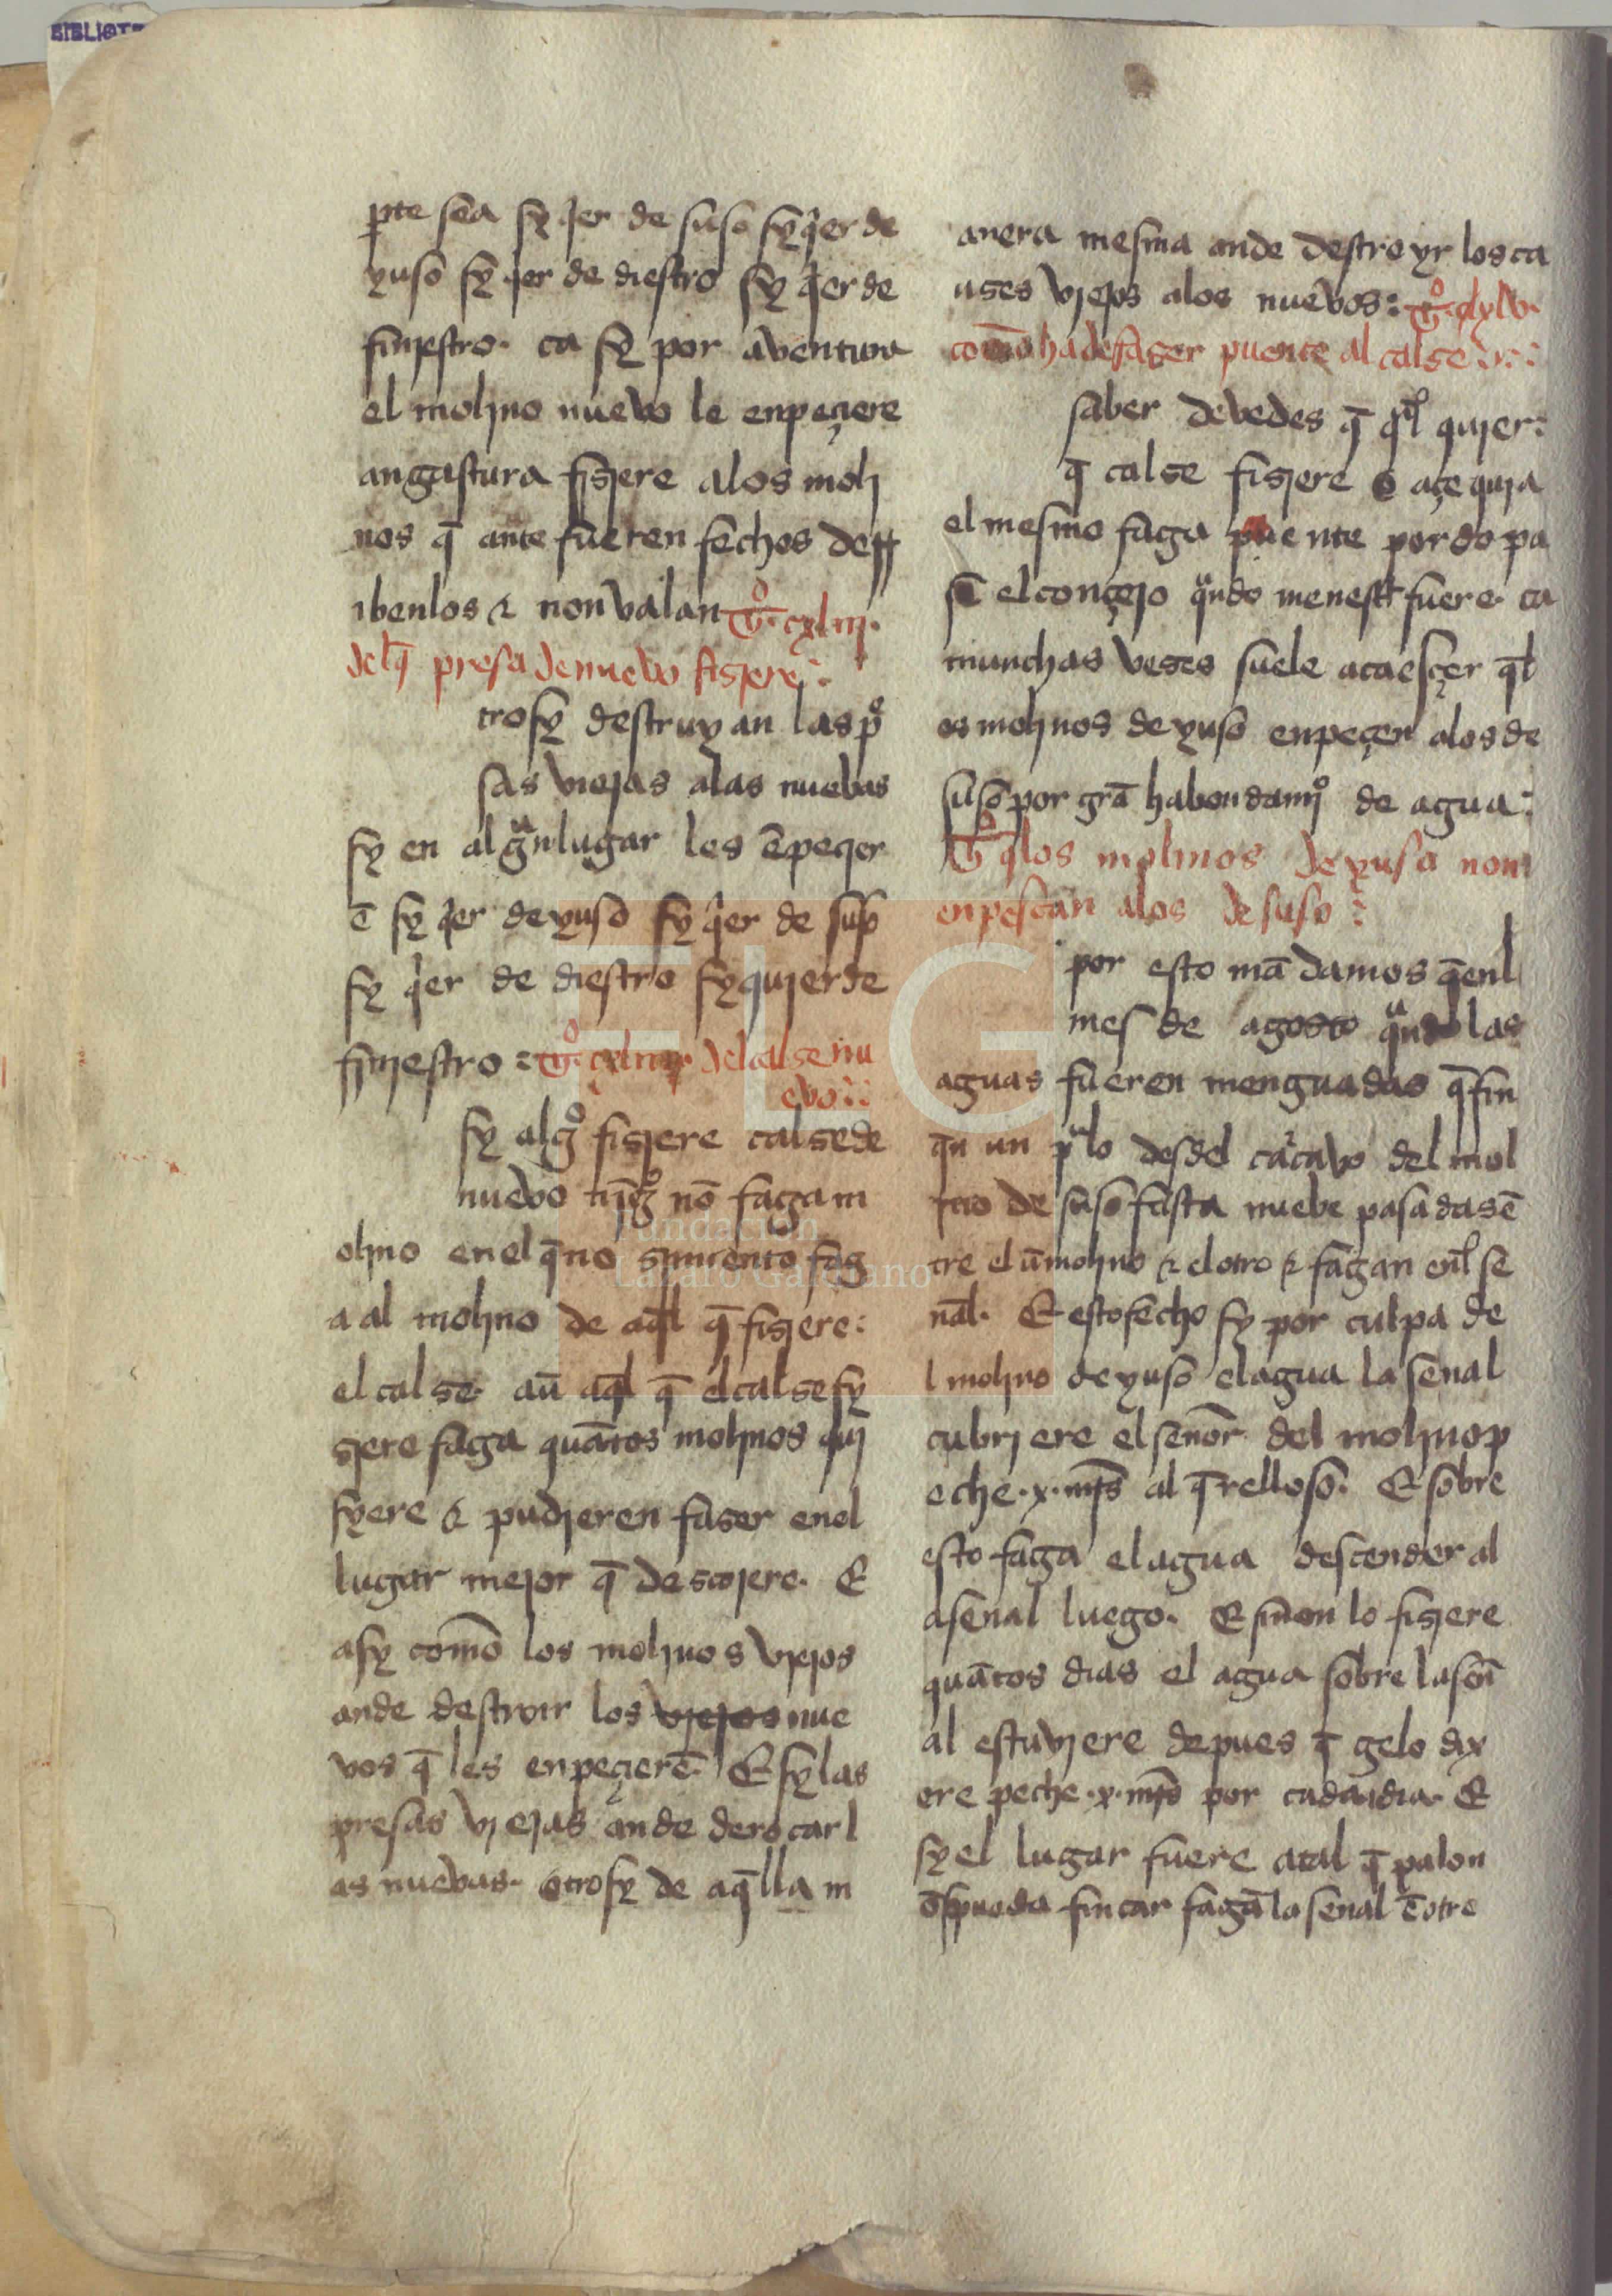 BIBLIOTE
pte sea sy qer de suso sy qer de
yuso sy qer de diestro sy qer de
siniestro. ca sy por aventura
el molino nuevo le enpeçiere
angastura fisiere alos moli
nos q̄ ante fueren fechos derr
ibenlos & non valan Tº. cxliij.
delq̄ presa de nuevo fisiere:
trosy destruyan las pe
sas viejas alas nuebas
sy en algun lugar les ēpeçier
ē sy qer de yuso sy qer de suso
sy qer de diestro sy quier de
siniestro: Tº. del calse nu
evo:
sy algº fisiere calse de
nuevo nīgº nō faga m
olino en el q̄ no fag
a al molino de aq̄l q̄ fisiere:
el calse. aū aq̄l q̄ el calse fy
siere faga quātos molinos qui
syere & pudieren faser enel
lugar mejor q̄ descojere. E
asy como los molinos viejos
ande destroir los viejos nue
vos q̄ les enpeçierē. E sy las
presas viejas ande derocar l
as nuevas. otrosy de aq̄lla m
anera mesma ande destroyr los ca
uses viejos alos nuevos: Tº. cxlv.
como ha de faser puente al calse:
saber devedes q̄ ql quier:
q̄ calse fisiere o açequia
el mesmo faga puente por do pa
sē el conçejo qndo menestr fuere. ca
munchas veses suele acaesçer q̄ l
os molinos de yuso enpeçen alos de
suso por grā habondamjº de agua:
Tº q̄ los molinos de yuso non
enpescan alos de suso:
por esto mādamos q̄ enl
mes de agosto qndo las
aguas fueren menguadas q̄ fin
qn un palo desdel cacavo del mol
ino de suso fasta nuebe pasadas ē
tre el ū molino & el otro & fagan enl se
nal. E esto fecho sy por culpa de
l molino de yuso el agua la senal
cubriere el senor del molino p
eche .x. mrs al q̄relloso. E sobre
esto faga el agua descender al
a senal luego. E sinon lo fisiere
quātos dias el agua sobre la sen
al estuviere depues q̄ gelo dix
ere peche .x. mrs por cada dia. E
sy el lugar fuere atal q̄ palo n
o se pueda fincar fagā la senal ē otre
FLG
Fundación
Lázaro Galdiano